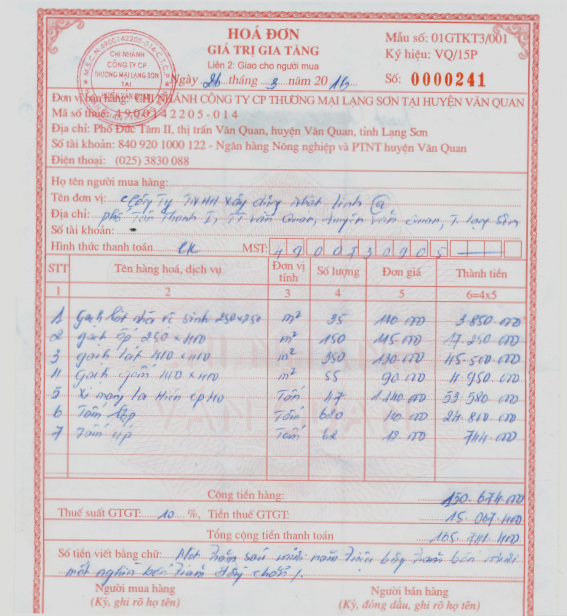 HOÁ ĐƠN
GIÁ TRỊ GIA TĂNG
Liên 2: Giao cho người mua
Ngày 26 tháng 3 năm 2016
Mẫu số: 01GTKT3/001
Ký hiệu: VQ/15P
Số: 0000241
M.S.C.N:4900142205-014-C.T.C.P
CHI NHÁNH
CÔNG TY CP
THƯƠNG MẠI LẠNG SƠN
TẠI
HUYỆN VĂN QUAN
Đơn vị bán hàng: CHI NHÁNH CÔNG TY CP THƯƠNG MẠI LẠNG SƠN TẠI HUYỆN VĂN QUAN
Mã số thuế: 4900142205-014
Địa chỉ: Phố Đức Tâm II, thị trấn Văn Quan, huyện Văn Quan, tỉnh Lạng Sơn
Số tài khoản: 840 920 1000 122 - Ngân hàng Nông nghiệp và PTNT huyện Văn Quan
Điện thoại: (025) 3830 088
Họ tên người mua hàng:
Tên đơn vị: Công ty TNHH xây dựng Nhật Linh
Địa chỉ: phố Tân Thanh I, TT Văn Quan, huyện Văn Quan, T. Lạng Sơn
Số tài khoản:
Hình thức thanh toán CK MST: 4900730905
STT Tên hàng hoá, dịch vụ Đơn vị tính Số lượng Đơn giá Thành tiền
1 2 3 4 5 6=4x5
1 Gạch lát nhà vệ sinh 250x250 m² 35 110 000 3.850.000
2 gạch ốp 250 x 400 m² 150 115 000 17.250.000
3 gạch lát 400 x 400 m² 350 130 000 45.500.000
4 Gạch gốm 400 x 400 m² 55 90 000 4.950.000
5 Xi măng La Hiên 47 1.140.000 53.580.000
6 Tấm lợp Tấm 620 40 000 24.800.000
7 Tấm úp Tấm 62 12 000 744.000
Cộng tiền hàng: 150.674.000
Thuế suất GTGT: 10 %, Tiền thuế GTGT: 15.067.400
Tổng cộng tiền thanh toán 165.741.400
Số tiền viết bằng chữ: Một trăm sáu mươi năm triệu bảy trăm bốn mươi
mốt nghìn bốn trăm đồng chẵn
Người mua hàng
(Ký, ghi rõ họ tên)
Người bán hàng
(Ký, đóng dấu, ghi rõ họ tên)